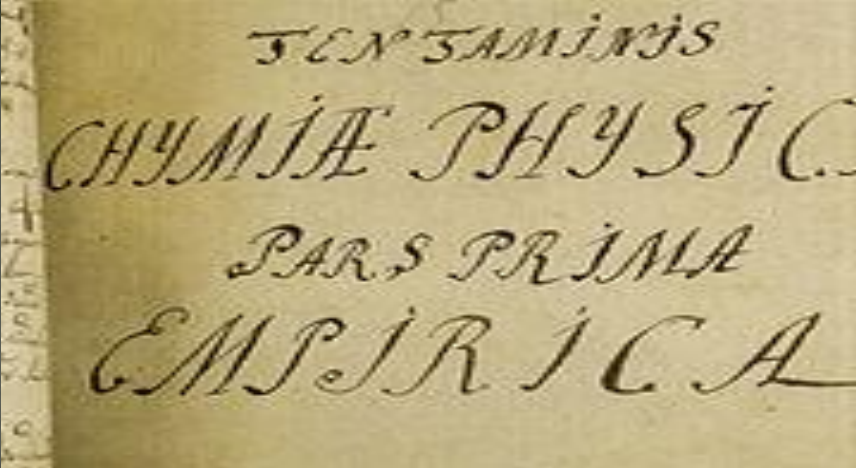 TENTAMINIS
CHYMIÆ PHYSIC
PARS PRIMA
EMPIRICA